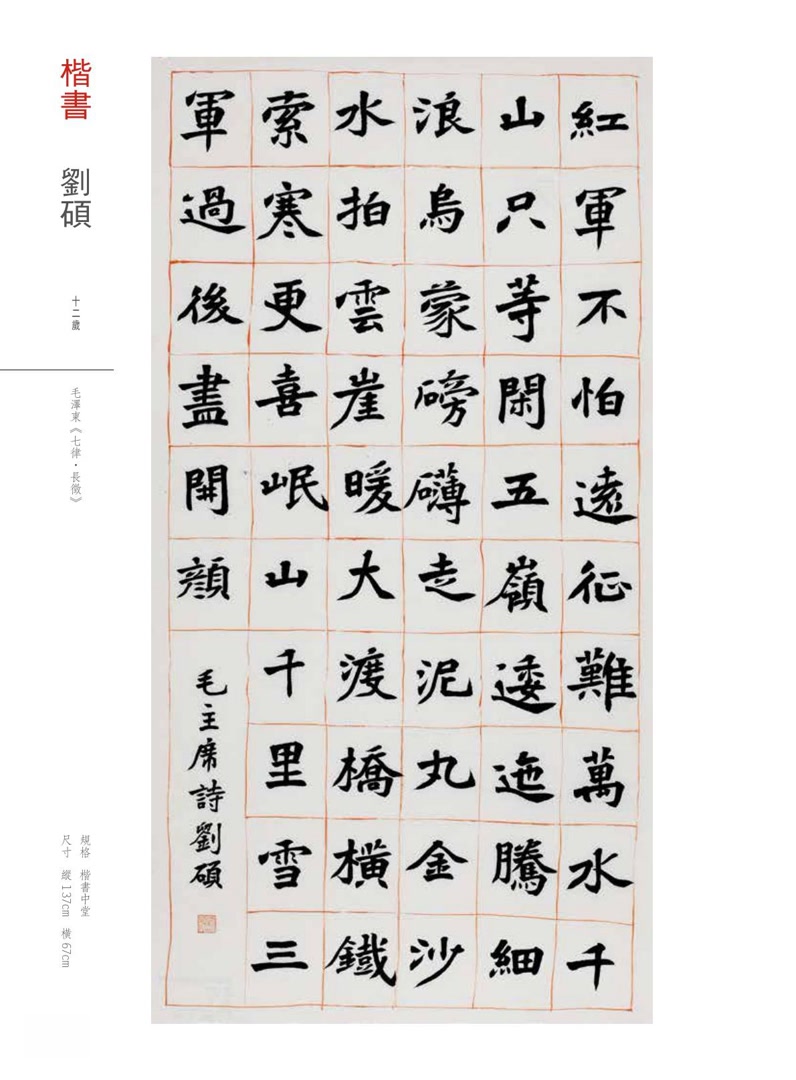 紅軍不怕遠征難萬水千
山只等閑五嶺逶迤騰細
浪烏蒙磅礴走泥丸金沙
水拍雲崖暖大渡橋橫鐵
索寒更喜岷山千里雪三
軍過後盡開顏
毛主席詩劉碩
楷書 劉碩
十二歲
毛澤東《七律·長徵》
規格 楷書中堂
尺寸 縱137cm 橫67cm